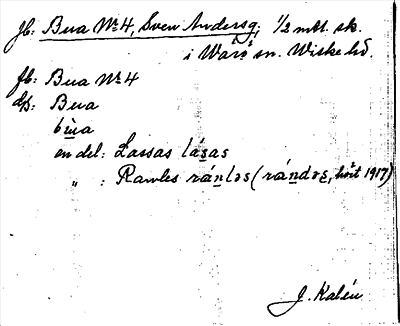 fb: Bua No 4, Sven Andersg, 1/2 mtl. sk.
i Warö sn. Wiske hd.
fb: Bua No 4
ds: Bua
bu̲a
en del: Lassas lása̲s
„ : Ramles rán̲ləs (rán̲dəs, hört 1917)
J. Kalén